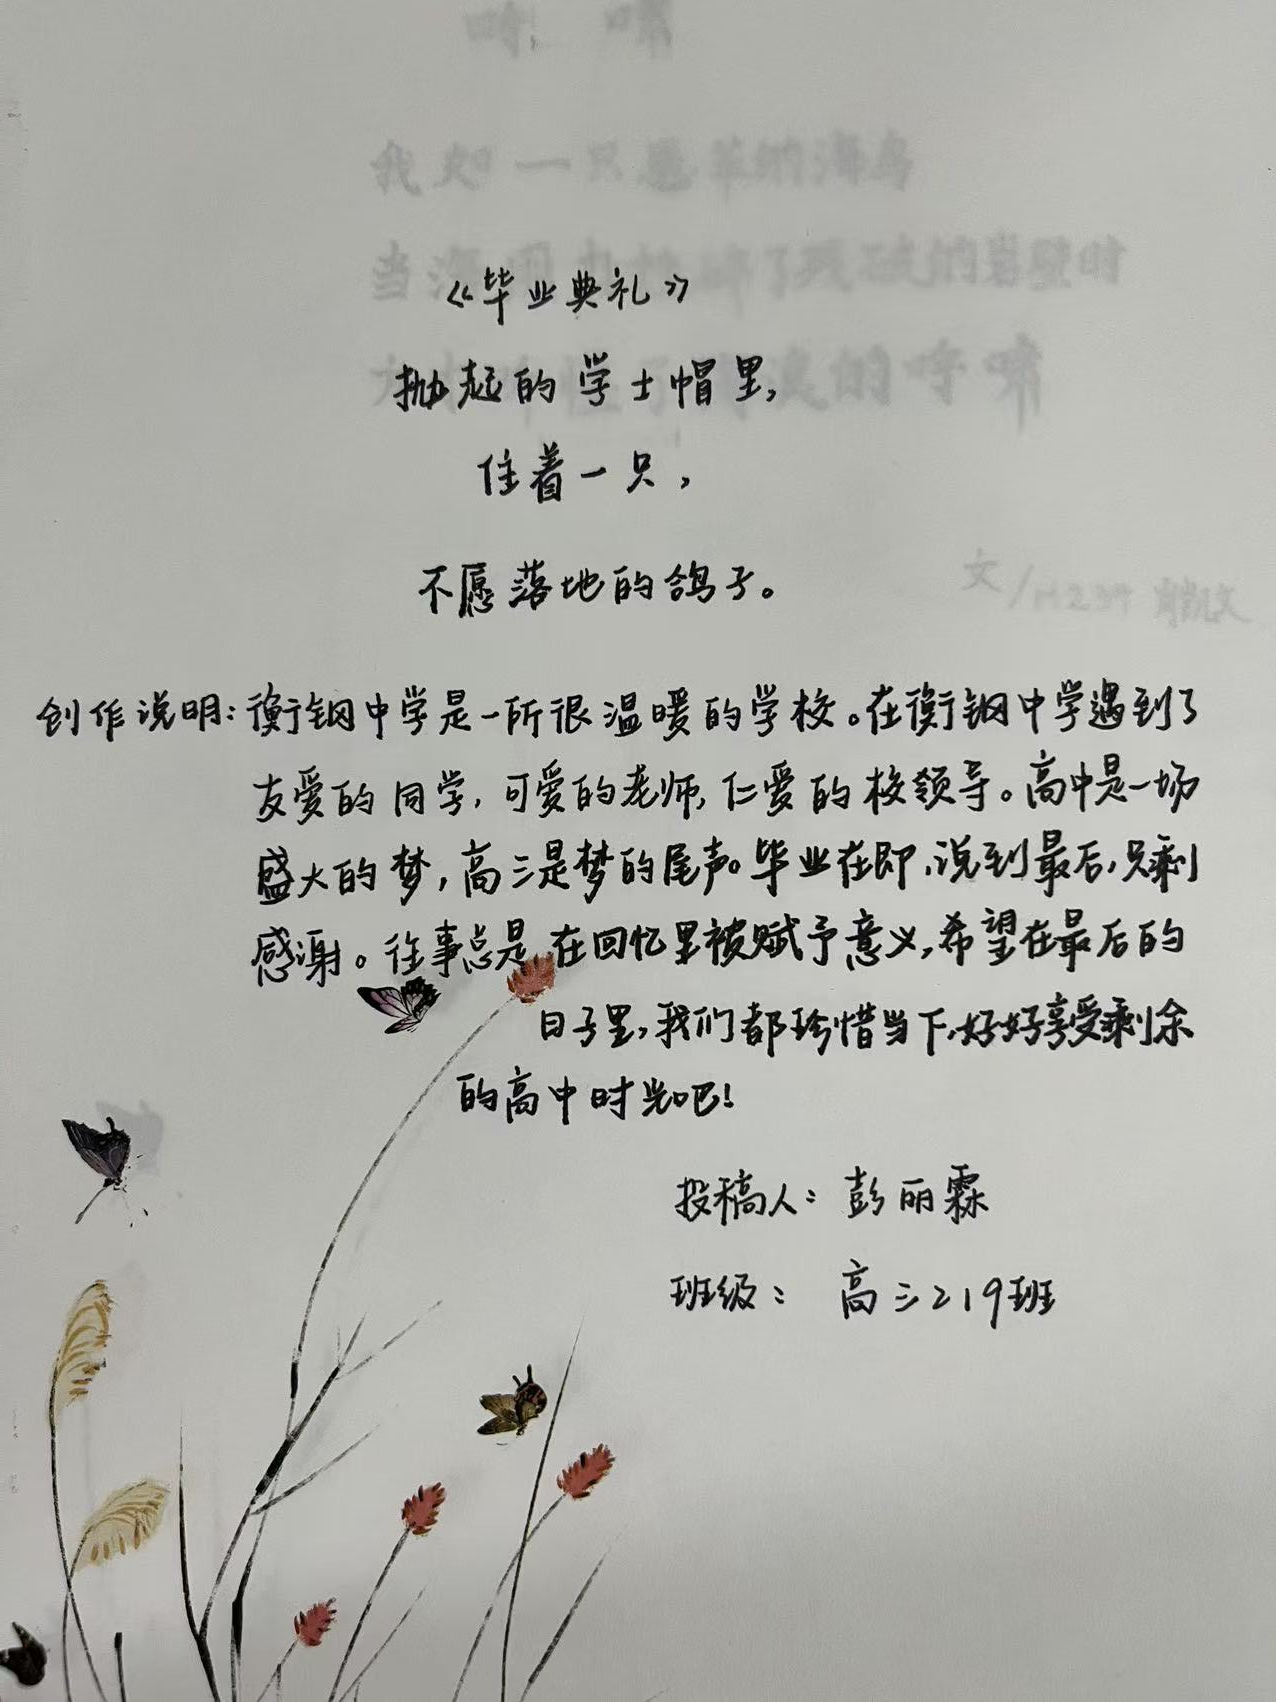 《毕业典礼》
抛起的学士帽里,
住着一只,
不愿落地的鸽子。
创作说明:衡钢中学是一所很温暖的学校。在衡钢中学遇到了
友爱的同学,可爱的老师,仁爱的校领导。高中是一场
盛大的梦,高三是梦的尾声。毕业在即,说到最后,只剩
感谢。往事总是在回忆里被赋予意义,希望在最后的
日子里,我们都珍惜当下,好好享受剩余
的高中时光吧!
投稿人:彭丽霖
班级:高三219班